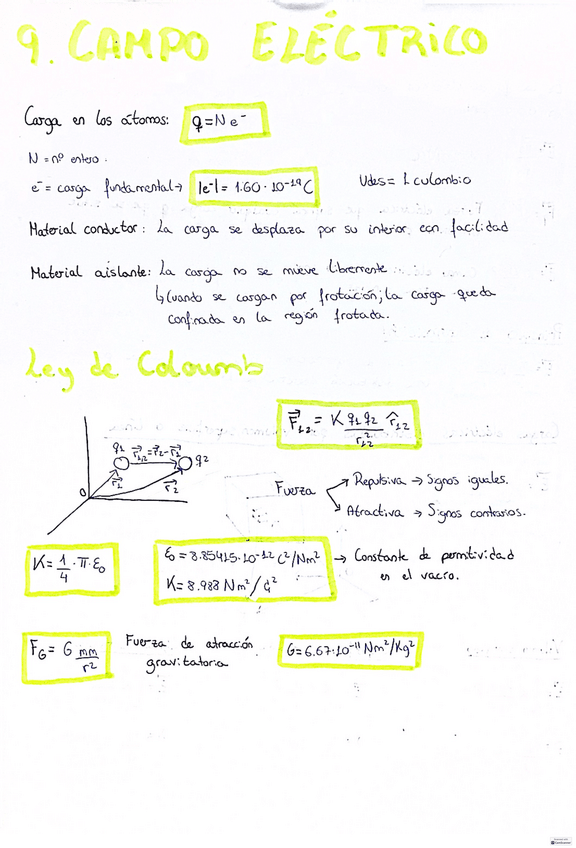 9. CAMPO ELÉCTRICO
Carga en los átomos: q=Ne⁻
N = nº entero.
e⁻= carga fundamental→ |e⁻|= 1.60·10⁻¹⁹C Udes= 1 culombio
Material conductor: La carga se desplaza por su interior con facilidad
Material aislante: La carga no se mueve libremente
↳Cuando se cargan por frotación, la carga queda
confinada en la región frotada.
Ley de Coloumb
F⃗₁₂ = K q₁q₂/r²₁₂ r̂₁₂
q₁ r⃗₁,₂=r⃗₂-r⃗₁ q₂
0 r⃗₁ r⃗₂
Fuerza
Repulsiva → Signos iguales.
Atractiva → Signos contrarios.
K= 1/4 · π·ε₀
ε₀ = 8.85415·10⁻¹² C²/Nm² → Constante de permitividad
en el vacío.
K= 8.988 Nm²/C²
F_G= G mm/r² Fuerza de atracción
gravitatoria
G=6.67·10⁻¹¹ Nm²/Kg²